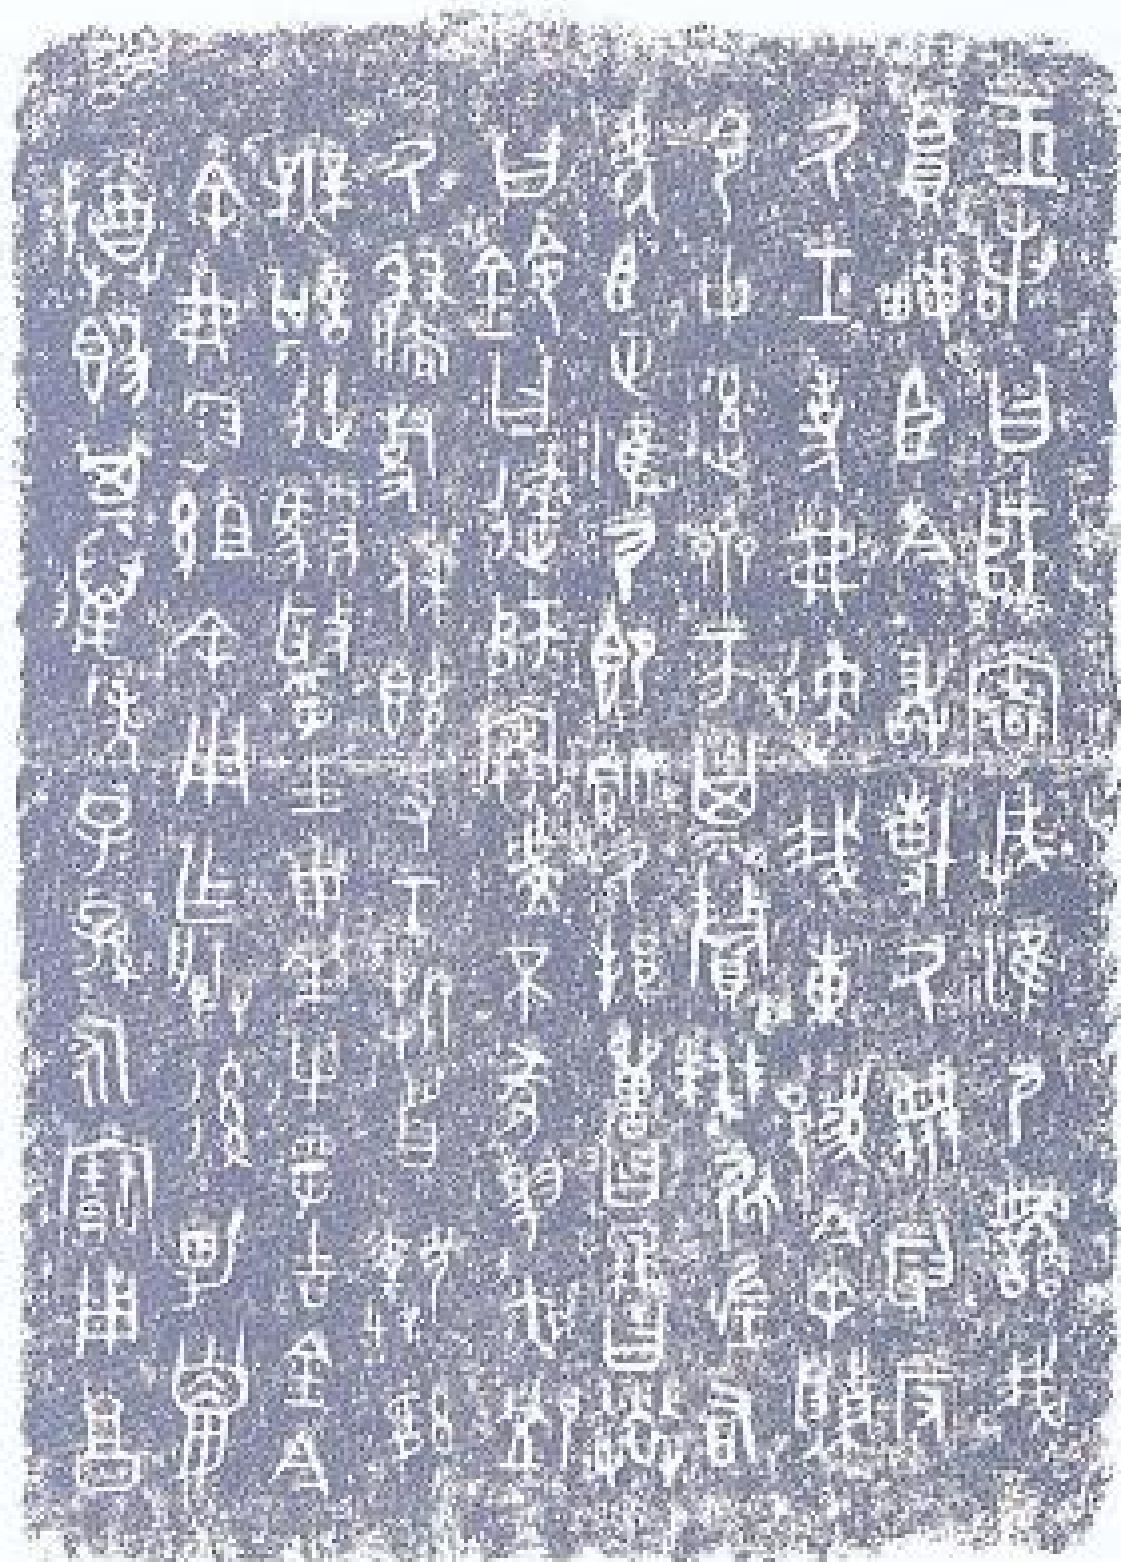 王若曰師㝨淮尸繇我
員畮臣今敢博厥眾叚反
厥工吏弗速我東國今余肇
令女率齊帀左右
虎臣正淮尸即厥邦獸曰冉曰
曰鈴曰達師㝨虔不夙夜卹
厥牆事休既又工折首執訊
無諆徒馭毆孚士女羊牛孚吉金今
余弗叚組余用乍朕後男巤
尊簋其萬年子孫永寶用享